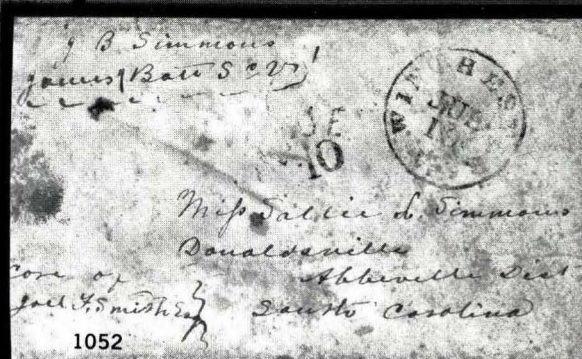 J B Simmons
James Batt S.C.V.
WINCHES
JUL
DUE
10
Miss Sallie A. Simmons
Donaldsville
Abbeville Dist
South Carolina
Care of
Joel T. Smith Esq
1052